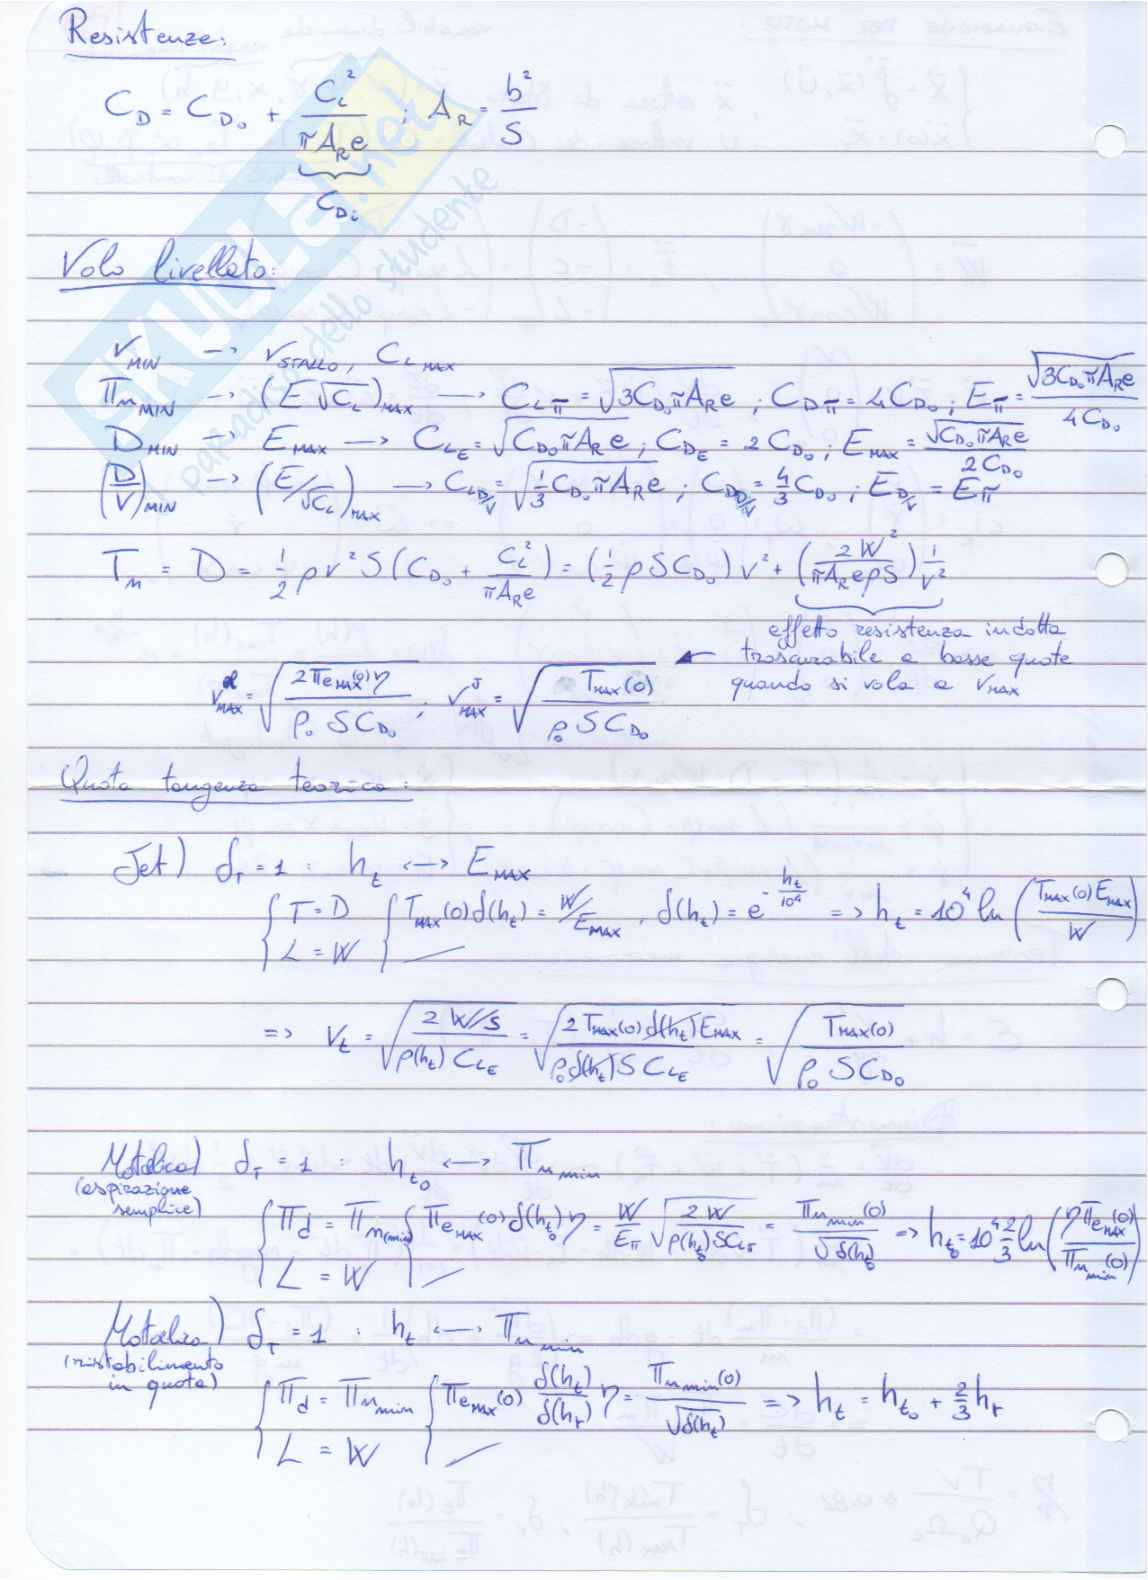 Resistenze:
C_D = C_D0 + C_L² / (π A_R e) ; A_R = b² / S
C_Di
Volo livellato:
V_MIN → V_STALLO, C_L MAX
Π_n MIN → (E √C_L)_MAX → C_Lπ = √(3 C_D0 π A_R e) ; C_Dπ = 4 C_D0 ; E_π = √(3 C_D0 π A_R e) / 4 C_D0
D_MIN → E_MAX → C_LE = √(C_D0 π A_R e) ; C_DE = 2 C_D0 ; E_MAX = √(C_D0 π A_R e) / 2 C_D0
(D/V)_MIN → (E/√C_L)_MAX → C_L D/V = √(1/3 C_D0 π A_R e) ; C_D D/V = 4/3 C_D0 ; E_D/V = E_π
T_n = D = 1/2 ρ V² S (C_D0 + C_L² / (π A_R e)) = (1/2 ρ S C_D0) V² + (2 W² / (π A_R e ρ S)) 1/V²
effetto resistenza indotta
trascurabile a basse quote
quando si vola a V_MAX
V_MAX = √(2 Π_e MAX(0) η / ρ_0 S C_D0) ; V_MAX^J = √(T_MAX(0) / ρ_0 S C_D0)
Quota tangenza teorica:
Jet) δ_T = 1 : h_t ↔ E_MAX
{ T = D { T_MAX(0) δ(h_t) = W/E_MAX , δ(h_t) = e^(-h_t/10⁴) => h_t = 10⁴ ln (T_MAX(0) E_MAX / W)
L = W
=> V_t = √(2 W/S / ρ(h_t) C_LE) = √(2 T_MAX(0) δ(h_t) E_MAX / ρ_0 δ(h_t) S C_LE) = √(T_MAX(0) / ρ_0 S C_D0)
Motoelica) δ_T = 1 : h_t0 ↔ Π_n min
(aspirazione
semplice)
{ Π_d = Π_n(min) { Π_e MAX(0) δ(h_t0) η = W/E_π √(2 W / ρ(h_t0) S C_Lπ) = Π_n min(0) / √δ(h_t0) => h_t0 = 10⁴ 2/3 ln (η Π_e MAX(0) / Π_n min(0))
L = W
Motoelica) δ_T = 1 : h_t ↔ Π_n min
(ristabilimento
in quota)
{ Π_d = Π_n min { Π_e MAX(0) δ(h_t)/δ(h_r) η = Π_n min(0) / √δ(h_t) => h_t = h_t0 + 2/3 h_r
L = W
SKUOLA.net
paradiso dello studente